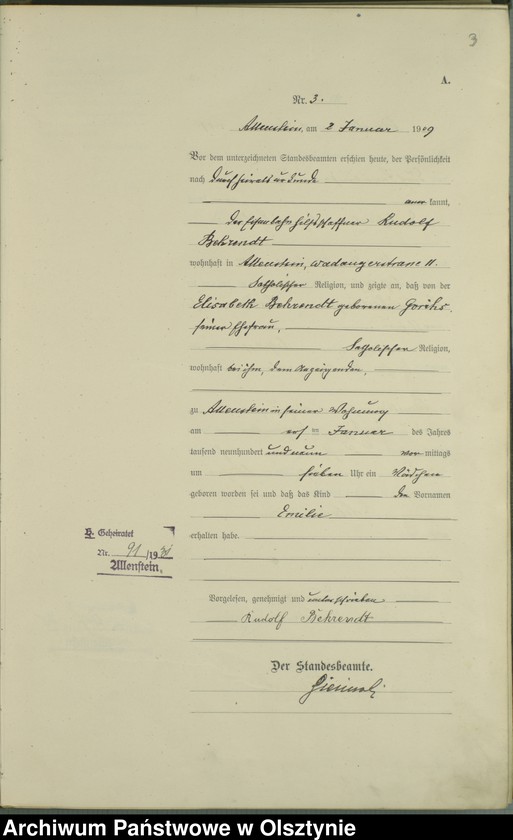 3
A.
Nr. 3.
Allenstein, am 2 Januar 1909
Vor dem unterzeichneten Standesbeamten erschien heute, der Persönlichkeit
nach durch Heiratsurkunde
aner kannt,
der Eisenbahnhilfsschaffner Rudolf
Behrendt
wohnhaft in Allenstein, Wadangerstrasse 11.
katholischer Religion, und zeigte an, daß von der
Elisabeth Behrendt geborenen
seiner Ehefrau,
katholischer Religion,
wohnhaft bei ihm, dem Anzeigenden,
zu Allenstein in seiner Wohnung
am ten Januar des Jahres
tausend neunhundert und neun vor mittags
um sieben Uhr ein Mädchen
geboren worden sei und daß das Kind den Vornamen
Emilie
erhalten habe.
Geheiratet
Nr. 91/19
Allenstein.
Vorgelesen, genehmigt und unterschrieben
Rudolf Behrendt
Der Standesbeamte.
Archiwum Państwowe w Olsztynie